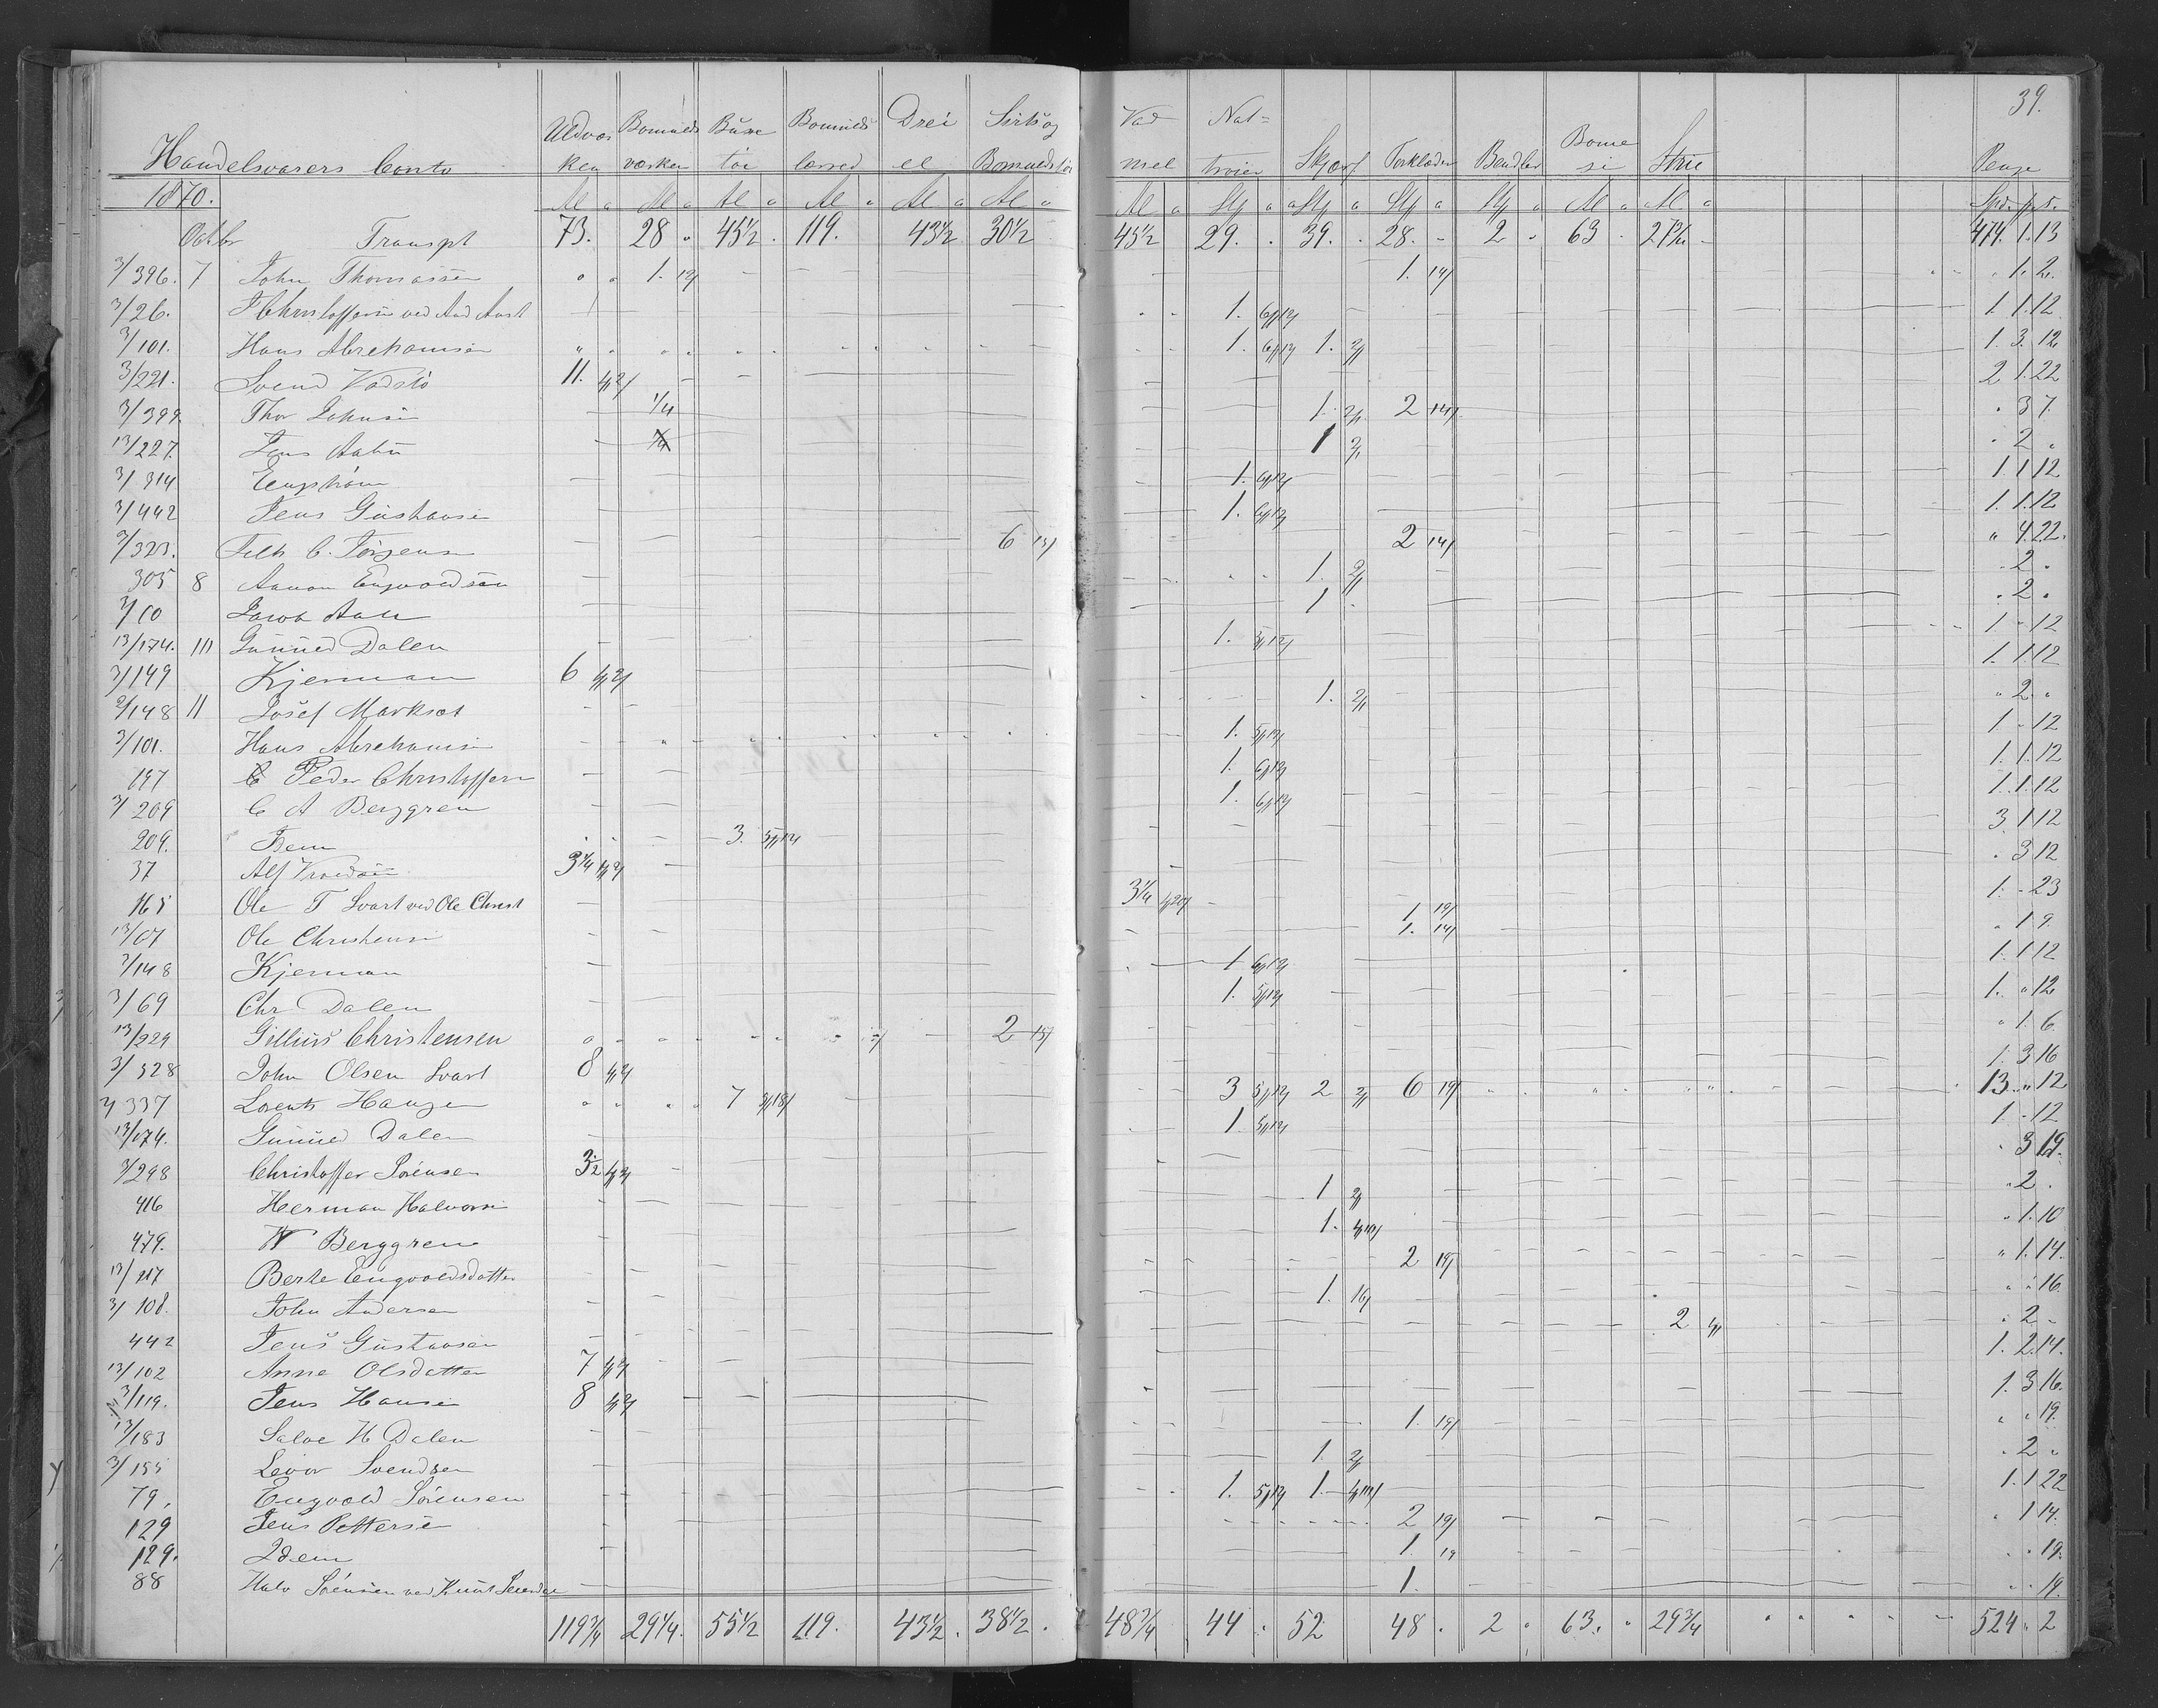 39.
Handelsvarers Conto
Uldvæsken Bomulds væsken Buxe tøi Bomulds lærred Dreiel Sirts og Bomuldstøi Vadmel Nattroier Skjørf Forklæder Bændler Bomesi Strie Penge
1870. Al a Al a Al a Al a Al a Al a Al a Stj a Stj a Stj a Stj a Al a Al a Spd. ƿ s.
Octbr Transpt 73. 28 " 45½ . 119. 43½ 30½ 45½ 29. . 39. . 28. - 2 . 63 . 27¾ - 474. 1. 13
3/396. 7 John Thomassen 1. 19/ 1. 19/ . 1. 2.
3/26. Christoffersen ved And Aust 1. 6/12/ 1 1. 12
3/101. Hans Abrehamsen 1. 6/12/ 1. 2/ 1. 3. 12
3/221. Svend Vadstø 11. 4/2/ 2 1. 22
3/399. Thor Johnsen 1/4 1. 2/ 2 14/ . 3 7.
13/227. Jens 1 2/ . 2 .
3/314 Engstrøm 1. 6/12/ 1. 1 12
3/442 Jens Gustavsen 1. 6/12/ 1. 1. 12
3/323. C. Jørgensen 6 15/ 2 14/ " 4. 22.
305 8 Aanon Engvoldsen 1. 2/ . 2 .
3/10 Jacob 1 . . 2 .
13/174. 10 Gunned Dalen 1. 5/12/ 1 - 12
3/149 Kjerman 6 4/2/ 1. 1 12
3/148 11 Josef Marksat 1. 2/ " 2 "
3/101. Hans Abrehamsen 1. 5/12/ 1 - 12
197 Peder Christoffersen 1. 6/12/ 1. 1. 12
3/209 C A Berggren 1. 6/12/ 1. 1. 12
209. Idem 3. 5/12/ 3 1 12
37 Alf 3¼ 4/2/ . 3 12
165 Ole T Svart ved Ole Christ 3¼ 4/20/ 1. 19/ 1. - 23
13/67 Ole Christensen 1. 14/ . 1 9.
3/148 Kjerman 1 6/12/ 1. 1 12
3/69 Chr Dalen 1. 5/12/ 1. " 12
13/229 Gillius Christensen 2 15/ " 1. 6.
3/328 John Olsen Svart 8 4/2/ 1. 3 16
3/337 Lorents Hansen 7 3/18/ 3 5/12/ 2 2/ 6 19/ 13. " 12
13/174. Gunned Dalen 1. 5/12/ 1 - 12
3/298 Christoffer Sørensen 3½ 4/2/ . 3 19.
416 Herman Halvorsen 1 2/ . 2 .
479. W Berggren 1. 4/10/ . 1. 10
13/217 Berte Engvoldsdatter 2 19/ " 1. 14.
3/108. John Andersen 1. 16/ . . 16.
442 Jens Gustavsen 2 4/ . 2 -
13/102 Anne Olsdatter 7 4/2/ 1. 2. 14.
3/119. Jens Hansen 8 4/2/ 1. 3 16.
13/183 Salve H Dalen 1. 19/ . . 19.
3/155 Levor Svendsen 1. 2/ . 2 .
79. Engvold Sørensen 1. 5/12/ 1. 4/10/ 1. 1 22
129 Jens Pettersen 2 19/ . 1 14.
129. Idem 1. 19 . . 19.
88 Halv Sørensen ved Knut Svendsen 1. . . 19.
119¾ 29¼. 55½ 119. 43½. 38½. 48¾ 44 . 52 48 . 2 . 63. . 29¾ 524 " 2